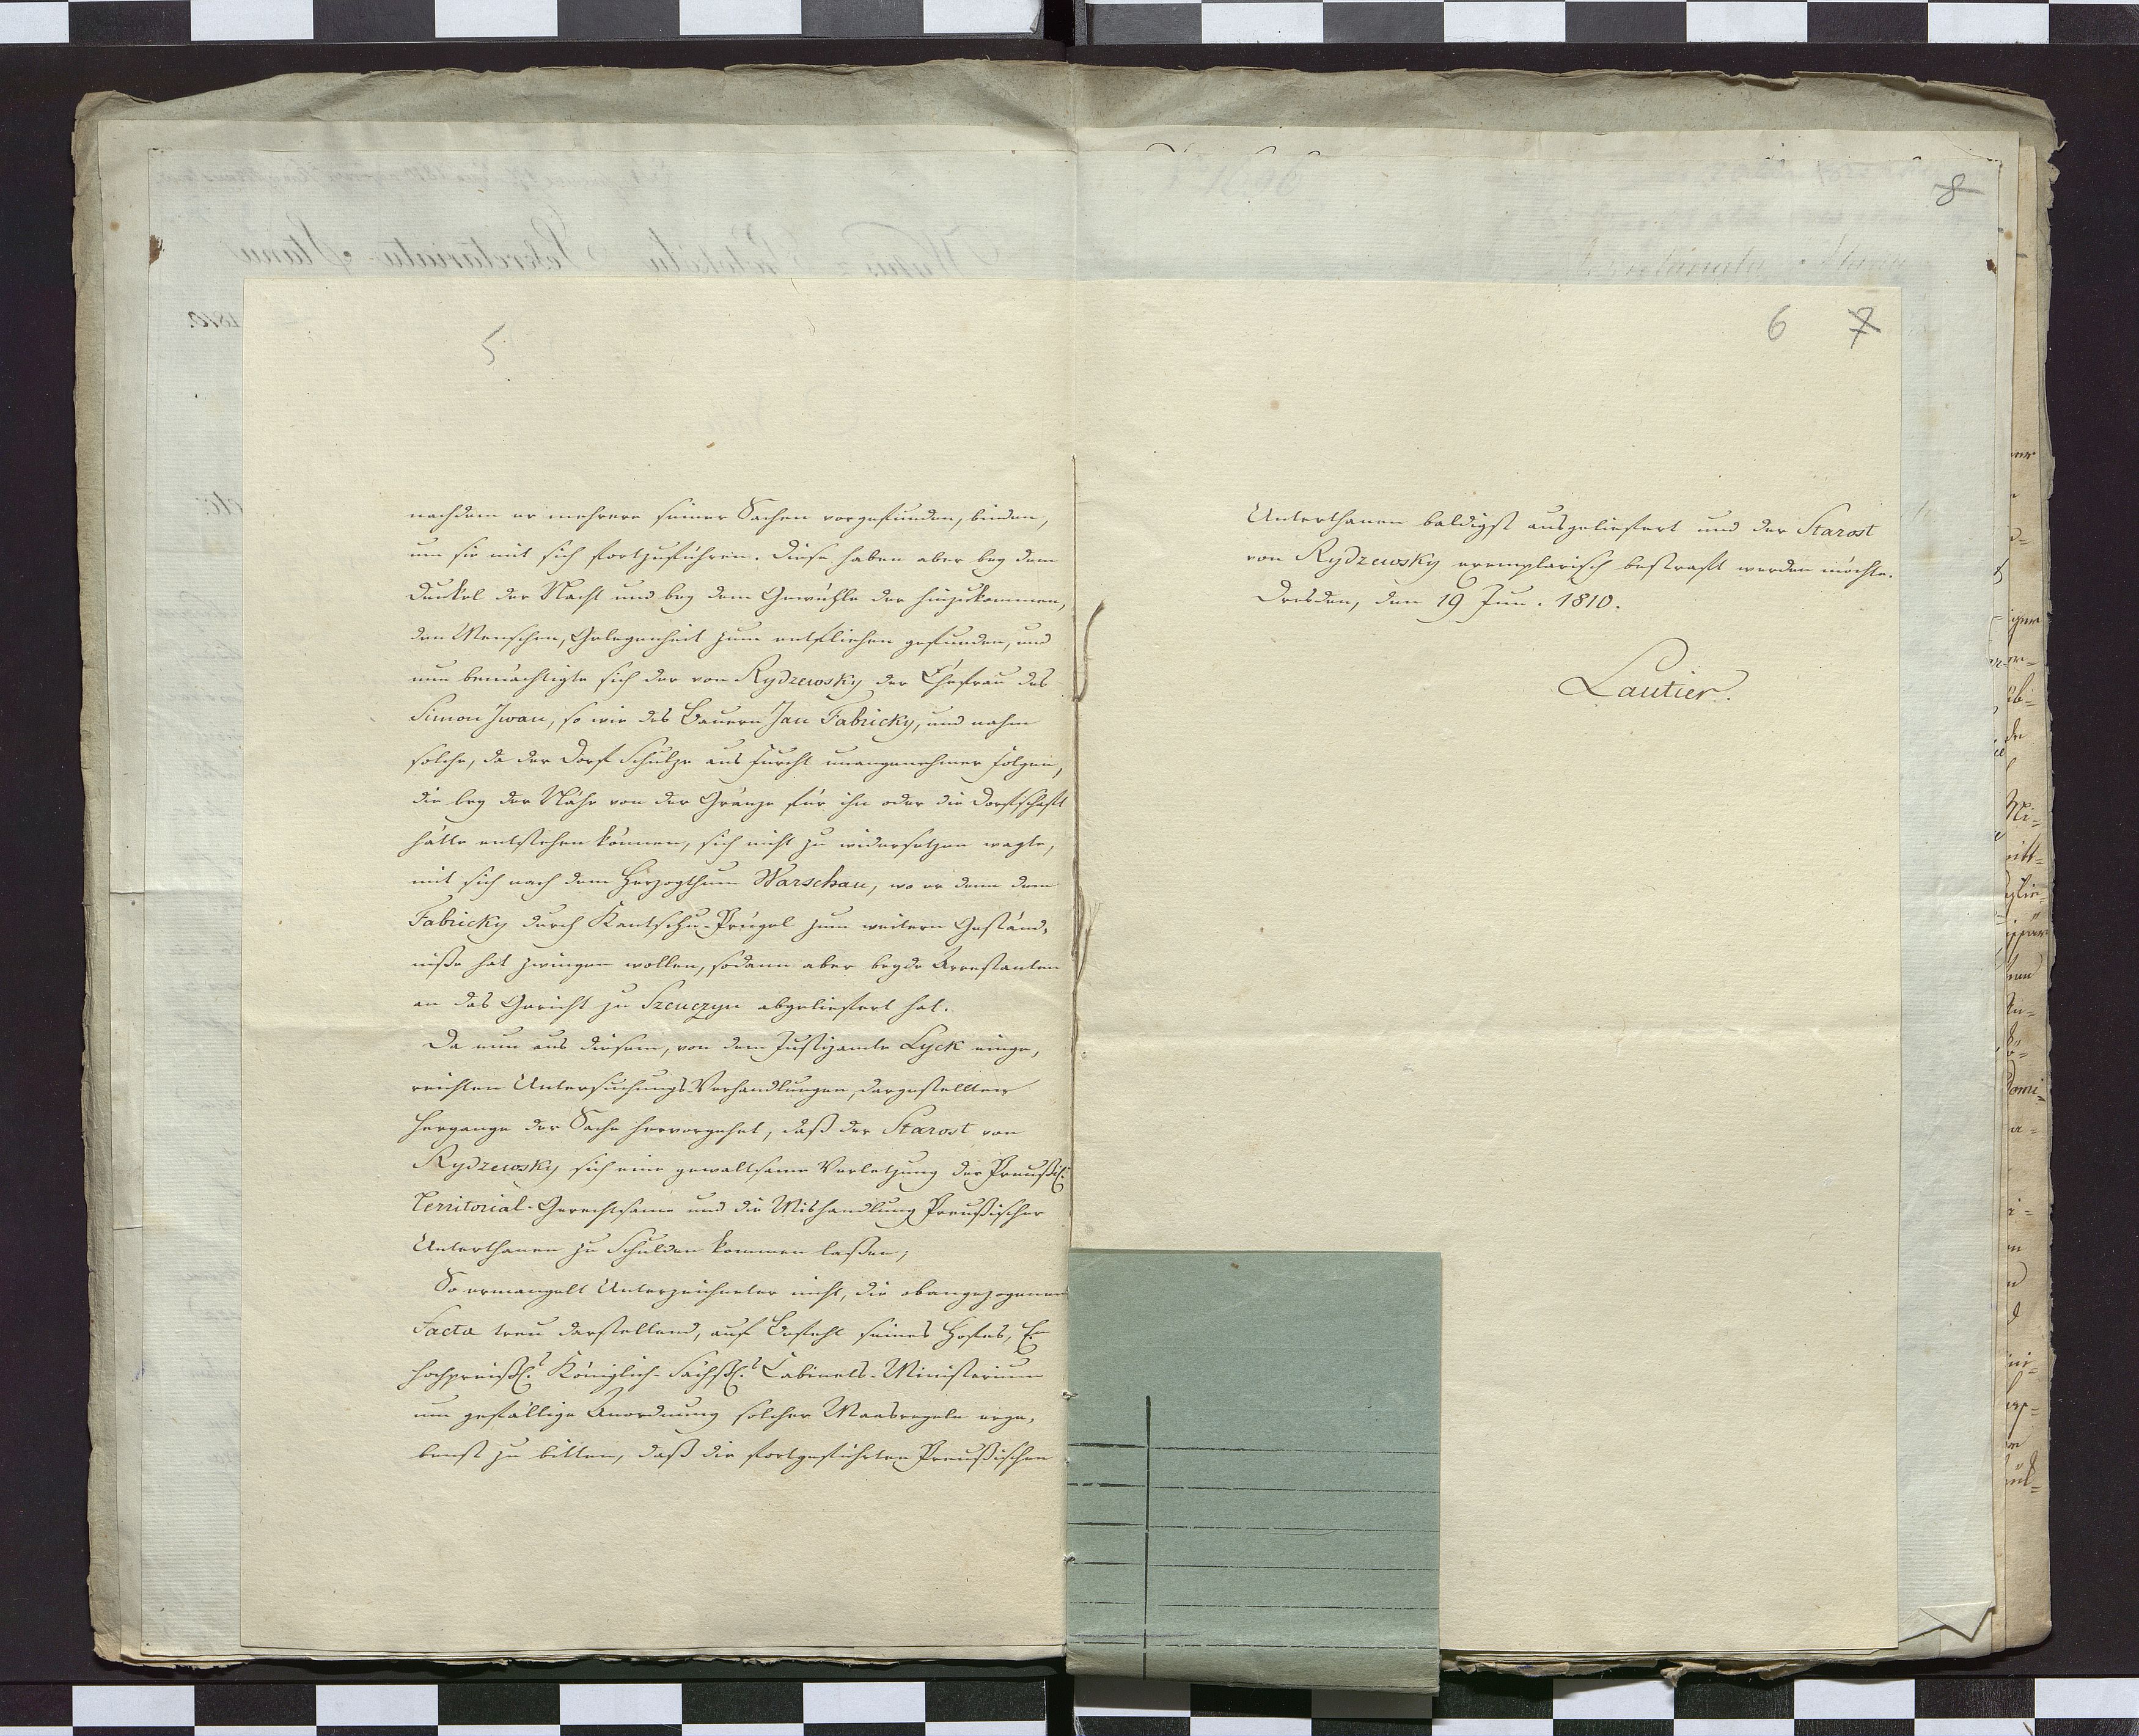 8
5
6 7
nachdem er mehrere seiner Sachen vorgefunden, binden,
um sie mit sich fortzuführen. Diese haben aber bey dem
Dunkel der Nacht und bey dem Gewühle der hinzukommen,
den Menschen, Gelegenheit zum entfliehen gefunden, und
nun bemächtigte sich der von Rydzewsky der Ehefrau des
Simon Iwan, so wie des Bauern Jan Fabricky, und nahm
solche, da der Dorf Schulze aus Furcht unangenehmer Folgen,
die bey der Nähe von der Gränze für ihn oder die Dorfschaft
hätte entstehen können, sich nicht zu widersetzen wagte,
mit sich nach dem Herzogthum Warschau, wo er denn dem
Fabricky durch Kantschu-Prügel zum weitern Geständ,
niße hat zwingen wollen, sodann aber beyde Arrestanten
an das Gericht zu Szcuczyn abgeliefert hat.
Da nun aus diesem, von dem Justizamte Lyck einge,
reichten Untersuchungs-Verhandlungen, dargestellten
Hergange der Sache hervorgehet, daß der Starost von
Rydzewsky sich eine gewaltsame Verletzung der Preußisch:
Territorial-Gerechtsame und die Mishandlung Preußischer
Unterthanen zu Schulden kommen laßen;
So ermangelt Unterzeichneter nicht, die obangezogenen
Facta treu darstellend, auf Befehl seines Hofes, E.
hochpreißl. Königlich-Sächß. Cabinets-Ministerium
um gefällige Anordnung solcher Maasregeln erge,
benst zu bitten, daß die fortgeführten Preußischen
Unterthanen baldigst ausgeliefert und der Starost
von Rydzewsky exemplarisch bestraft werden möchte.
Dresden, den 19 Jun. 1810.
Lautier.